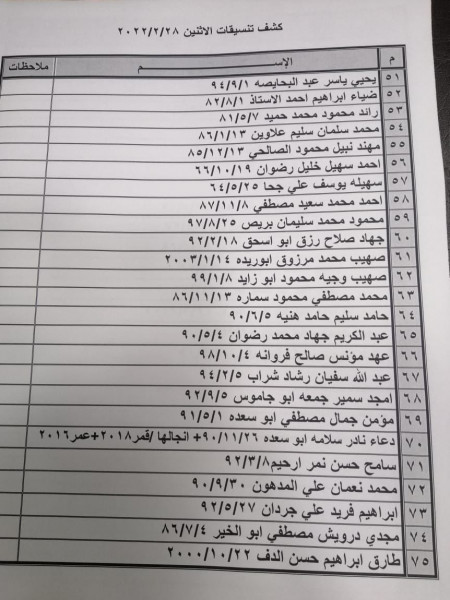 كشف تنسيقات الاثنين ٢٠٢٢/٢/٢٨
م الإســـم ملاحظات
٥١ يحيي ياسر عبد البحايصه ٩٤/٩/١
٥٢ ضياء ابراهيم احمد الاستاذ ٨٢/٨/١
٥٣ رائد محمود محمد حميد ٨١/٥/٧
٥٤ محمد سلمان سليم علاوين ٨٦/١/١٣
٥٥ مهند نبيل محمود الصالحي ٨٥/١٢/١٣
٥٦ احمد سهيل خليل رضوان ٦٦/١٠/١٩
٥٧ سهيله يوسف علي جحا ٦٤/٥/٢٥
٥٨ احمد محمد سعيد مصطفي ٨٧/١١/٨
٥٩ محمود محمد سليمان بريص ٩٧/٨/٢٥
٦٠ جهاد صلاح رزق ابو اسحق ٩٢/٢/١٨
٦١ صهيب محمد مرزوق ابوريده ٢٠٠٣/١/١٤
٦٢ صهيب وجيه محمود ابو زايد ٩٩/١/٨
٦٣ محمد مصطفي محمود سماره ٨٦/١١/١٣
٦٤ حامد سليم حامد هنيه ٩٠/٦/٥
٦٥ عبد الكريم جهاد محمد رضوان ٩٠/٥/٤
٦٦ عهد مؤنس صالح فروانه ٩٨/١٠/٤
٦٧ عبد الله سفيان رشاد شراب ٩٤/٢/٥
٦٨ امجد سمير جمعه ابو جاموس ٩٢/٩/٥
٦٩ مؤمن جمال مصطفي ابو سعده ٩١/٥/١
٧٠ دعاء نادر سلامه ابو سعده ٩٠/١١/٢٦+ انجالها /قمر٢٠١٨+عمر٢٠١٦
٧١ سامح حسن نمر ارحيم٩٢/٣/٨
٧٢ محمد نعمان علي المدهون ٩٠/٩/٣٠
٧٣ ابراهيم فريد علي جردان ٩٢/٥/٢٧
٧٤ مجدي درويش مصطفي ابو الخير ٨٦/٧/٤
٧٥ طارق ابراهيم حسن الدف ٢٠٠٠/١٠/٢٢